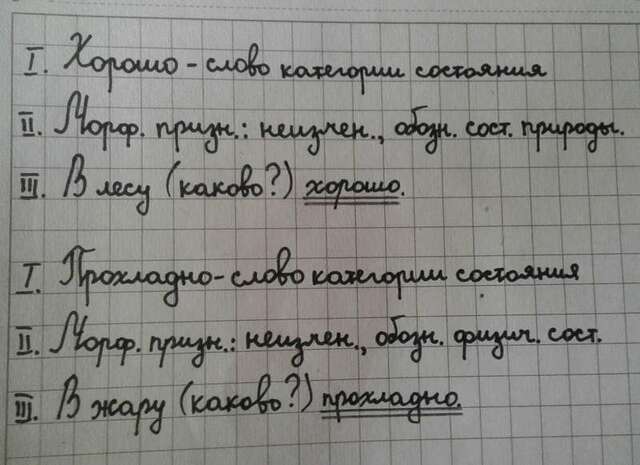 I. Хорошо - слово категории состояния
II. Морф. призн.: неизмен., обозн. сост. природы.
III. В лесу (каково?) хорошо.
I. Прохладно - слово категории состояния
II. Морф. призн.: неизмен., обозн. физич. сост.
III. В жару (каково?) прохладно.